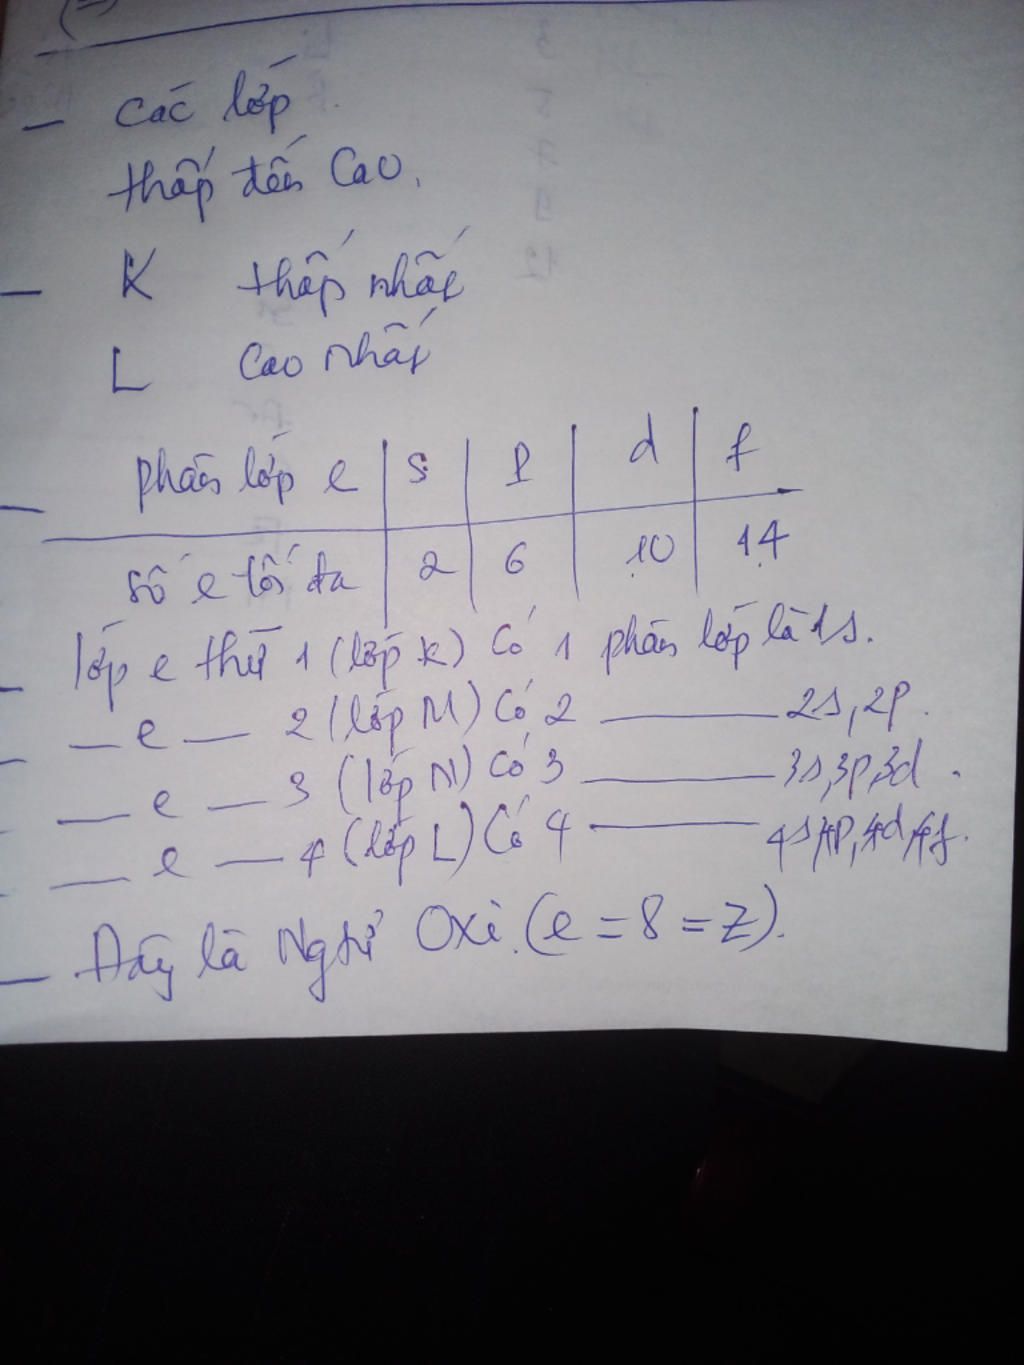 - các lớp
thấp đến Cao.
- K thấp nhất
L Cao nhất
- phân lớp e s p d f
số e tối đa 2 6 10 14
- lớp e thứ 1 (lớp K) Có 1 phân lớp là 1s.
- — e — 2 (lớp M) Có 2 — 2s, 2p.
- — e — 3 (lớp N) Có 3 — 3s, 3p, 3d.
- — e — 4 (lớp L) Có 4 — 4s, 4p, 4d, 4f.
- Đây là Ngtử Oxi. (e = 8 = Z).